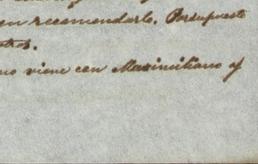 en recomendarlo. Por supuesto
otros.
no viene con Maximiliano y